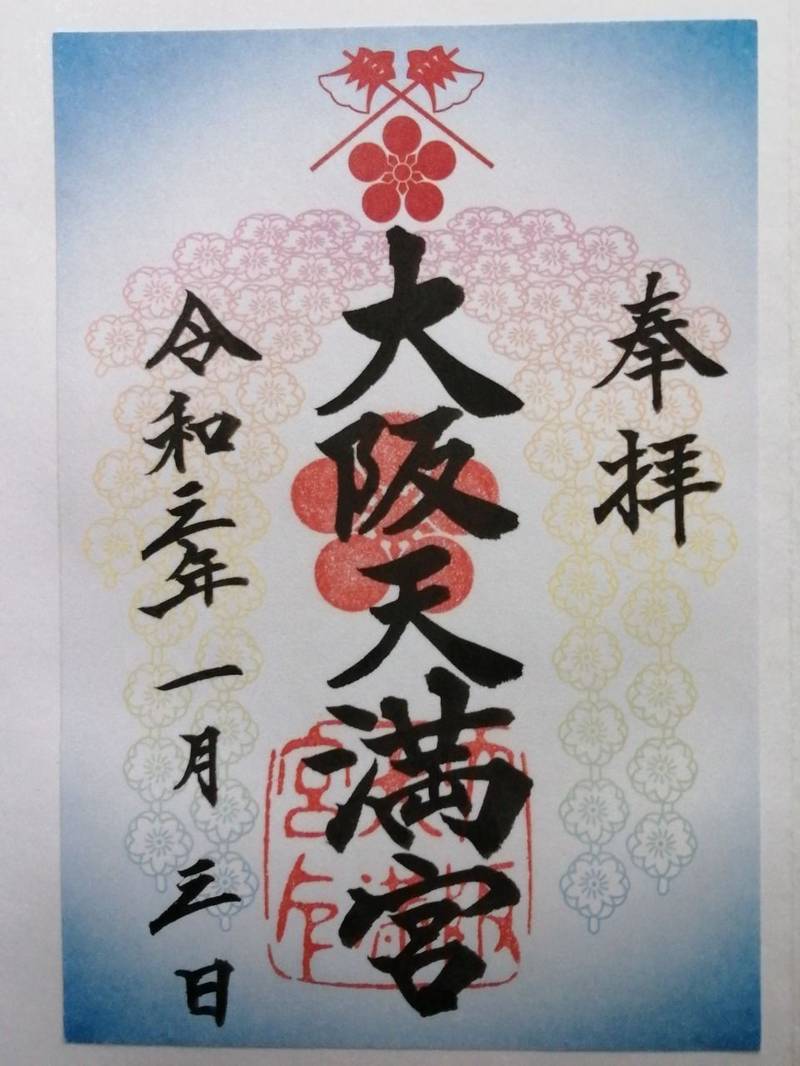 奉拝
大阪天満宮
令和三年一月三日